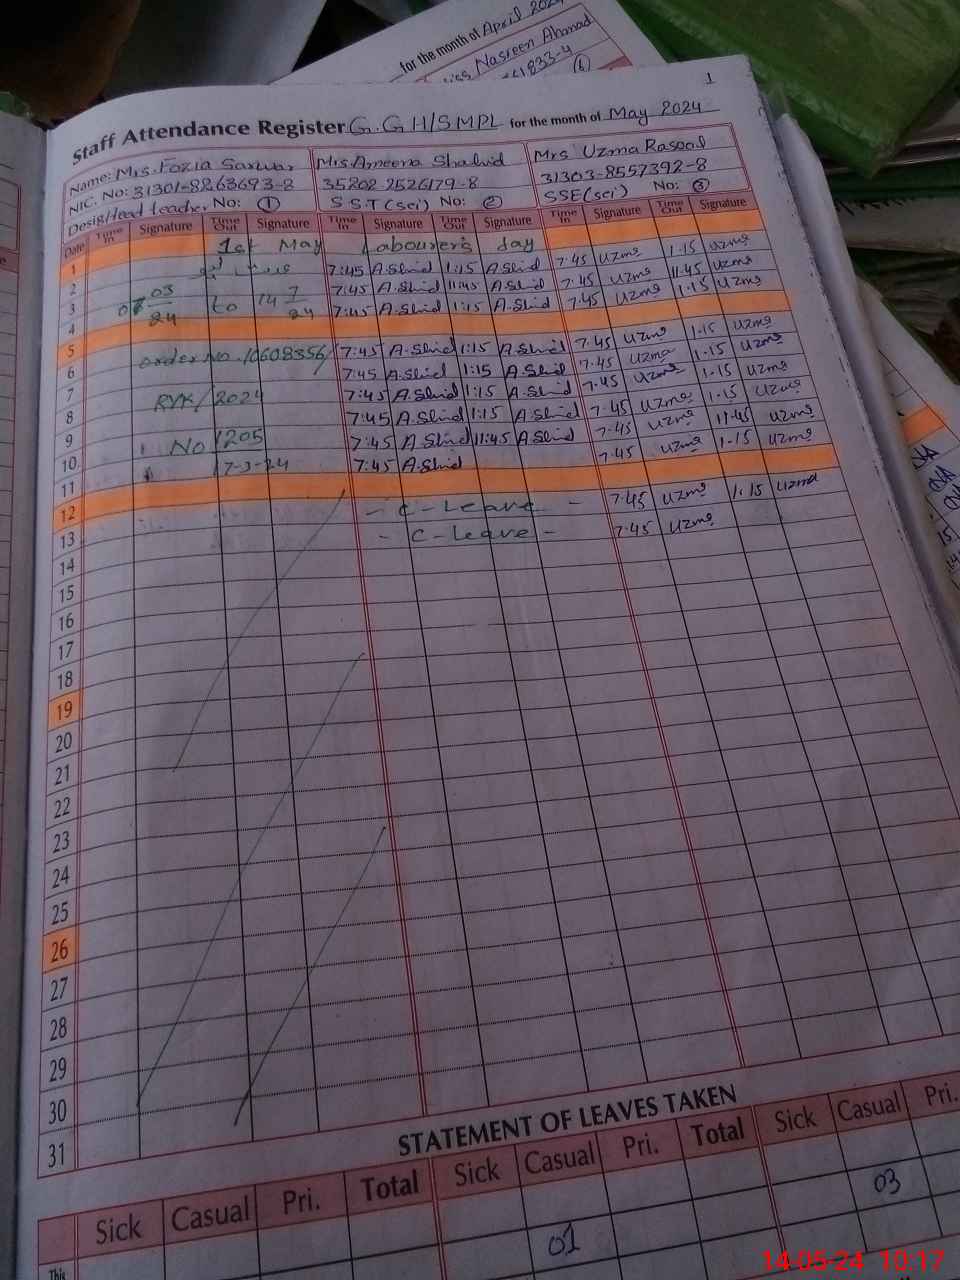 for the month of April 202
Nasreen Ahmad
1833-4
1
Staff Attendance Register G.GH/SMPL for the month of May 2024
Name: Mrs. Fozia Sarwar Mrs. Ameena Shahid Mrs Uzma Rasool
NIC. No: 31301-8863693-8 35202 2526179-8 31303-8557392-8
Desig/Head teacher No: 1 S.S.T (sci) No: 2 SSE (sci) No: 3
Date Time In Signature Time Out Signature Time In Signature Time Out Signature Time In Signature Time Out Signature
1 1st May Labourer's day
2 7:45 A.Shid 1:15 A.Shid 7.45 Uzma 1.15 Uzma
3 03/24 to 14 7/24 7:45 A.Shid 11:45 A.Shid 7.45 Uzma 11.45 Uzma
4 7:45 A.Shid 1:15 A.Shid 7.45 Uzma 1.15 Uzma
5
6 order No. 10608356/ 7:45 A.Shid 1:15 A.Shid 7.45 Uzma 1.15 Uzma
7 7:45 A.Shid 1:15 A.Shid 7.45 Uzma 1.15 Uzma
8 RYK/2024 7:45 A.Shid 1:15 A.Shid 7.45 Uzma 1.15 Uzma
9 7:45 A.Shid 1:15 A.Shid 7.45 Uzma 1.15 Uzma
10 No 1205 7:45 A.Shid 11:45 A.Shid 7.45 Uzma 11.45 Uzma
11 17-3-24 7:45 A.Shid 7.45 Uzma 1.15 Uzma
12
13 - C-Leave - 7.45 Uzma 1.15 Uzma
14 - C-Leave - 7.45 Uzma
15
16
17
18
19
20
21
22
23
24
25
26
27
28
29
30
31
STATEMENT OF LEAVES TAKEN
Sick Casual Pri. Total Sick Casual Pri. Total Sick Casual Pri.
This 01 03
14-05-24 10:17